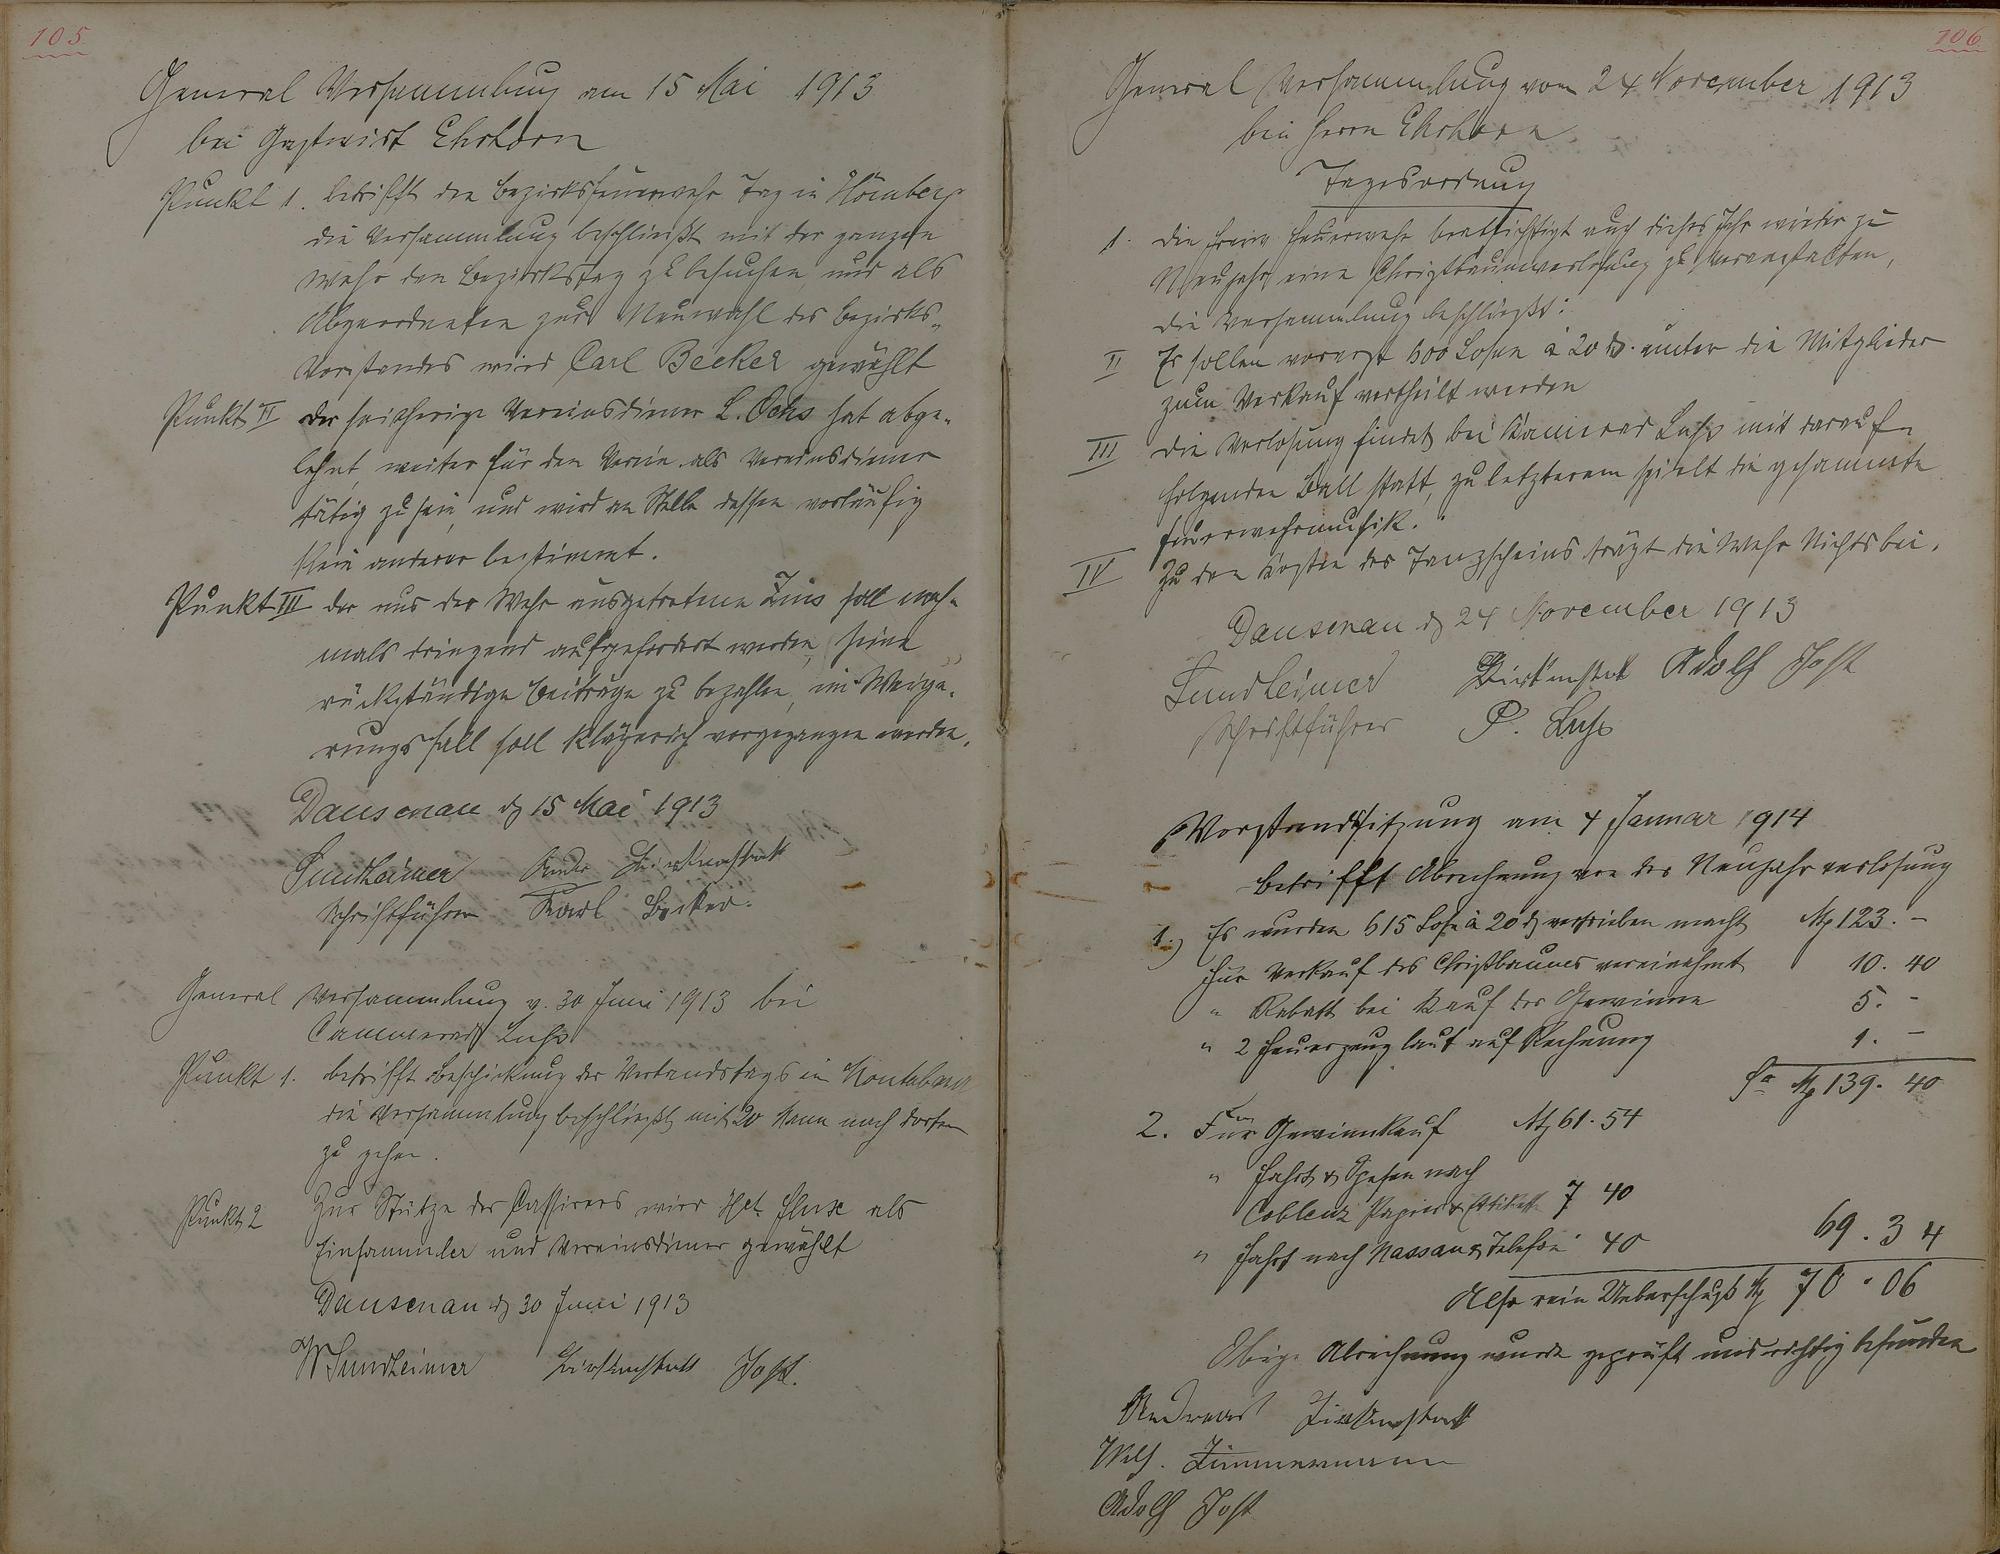 105
General Versammlung am 15 Mai 1913
bei Gastwirt Ehrhorn
Punkt 1. betrifft den Bezirksfeuerwehr Tag in Hömberg
die Versammlung beschließt mit der ganzen
Wehr den Bezirkstag zu besuchen, und als
Abgeordneten zur Neuwahl des Bezirks-
Vorstandes wird Carl Becker gewählt
Punkt II der seitherige Vereinsdiener L. Ochs hat abge-
lehnt, weiter für den Verein als Vereinsdiener
tätig zu sein, und wird an Stelle dessen vorläufig
kein anderer bestimmt.
Punkt III der aus der Wehr ausgetretene Zins soll noch-
mals dringend aufgefordert werden, seine
rückständigen Beiträge zu bezahlen, im Weige-
rungsfall soll klägerisch vorgegangen werden.
Dausenau d 15 Mai 1913
Sundheimer Birkenstock
Schriftführer Karl Becker.
General Versammlung v. 30 Juni 1913 bei
Cammerad
Punkt 1. betrifft Beschickung des Verbandstags in Montabaur
die Versammlung beschließt mit 20 Mann nach dorten
zu gehen.
Punkt 2 Zur Stütze des Cassirers wird als
Einsammler und Vereinsdiener gewählt
Dausenau d 30 Juni 1913
W Sundheimer Birkenstock Jost.
106
General Versammlung vom 24 November 1913
bei Herrn Ehrhorn
Tagesordnung
1. Die freiw. Feuerwehr beabsichtigt auch dieses Jahr wieder zu
Neujahr eine Christbaumverlosung zu veranstalten,
die Versammlung beschließt:
II Es sollen vorerst 600 Losen à 20 d. unter die Mitglieder
zum Verkauf vertheilt werden
III Die Verlosung findet bei Kamerad mit darauf-
folgenden Ball statt, zu letzterem spielt die gesammte
Feuerwehrmusik.
IV Zu den Kosten des Tanzscheins trägt die Wehr Nichts bei.
Dausenau d 24 November 1913
Sundheimer Birkenstock Adolf Jost
Schriftführer P.
Vorstandssitzung am 4 Januar 1914
betrifft Abrechnung von der Neujahrverlosung
1.) Es wurden 615 Lose à 20 d vertrieben macht M 123. -
Für Verkauf des Christbaumes vereinahmt 10. 40
" Rabatt bei Kauf der Gewinne 5. -
" 2 Feuerzeug laut auf Rechnung 1. -
Sa M 139. 40
2. Für Gewinnkauf M 61. 54
" Fahrt & Spesen nach
Coblenz Papier & 7 40
" Fahrt nach Nassau & Telefon 40 69. 34
Also rein Ueberschuß M 70. 06
Obige Abrechnung wurde geprüft und richtig befunden
Andreas Birkenstock
Wilh. Zimmermann
Adolf Jost